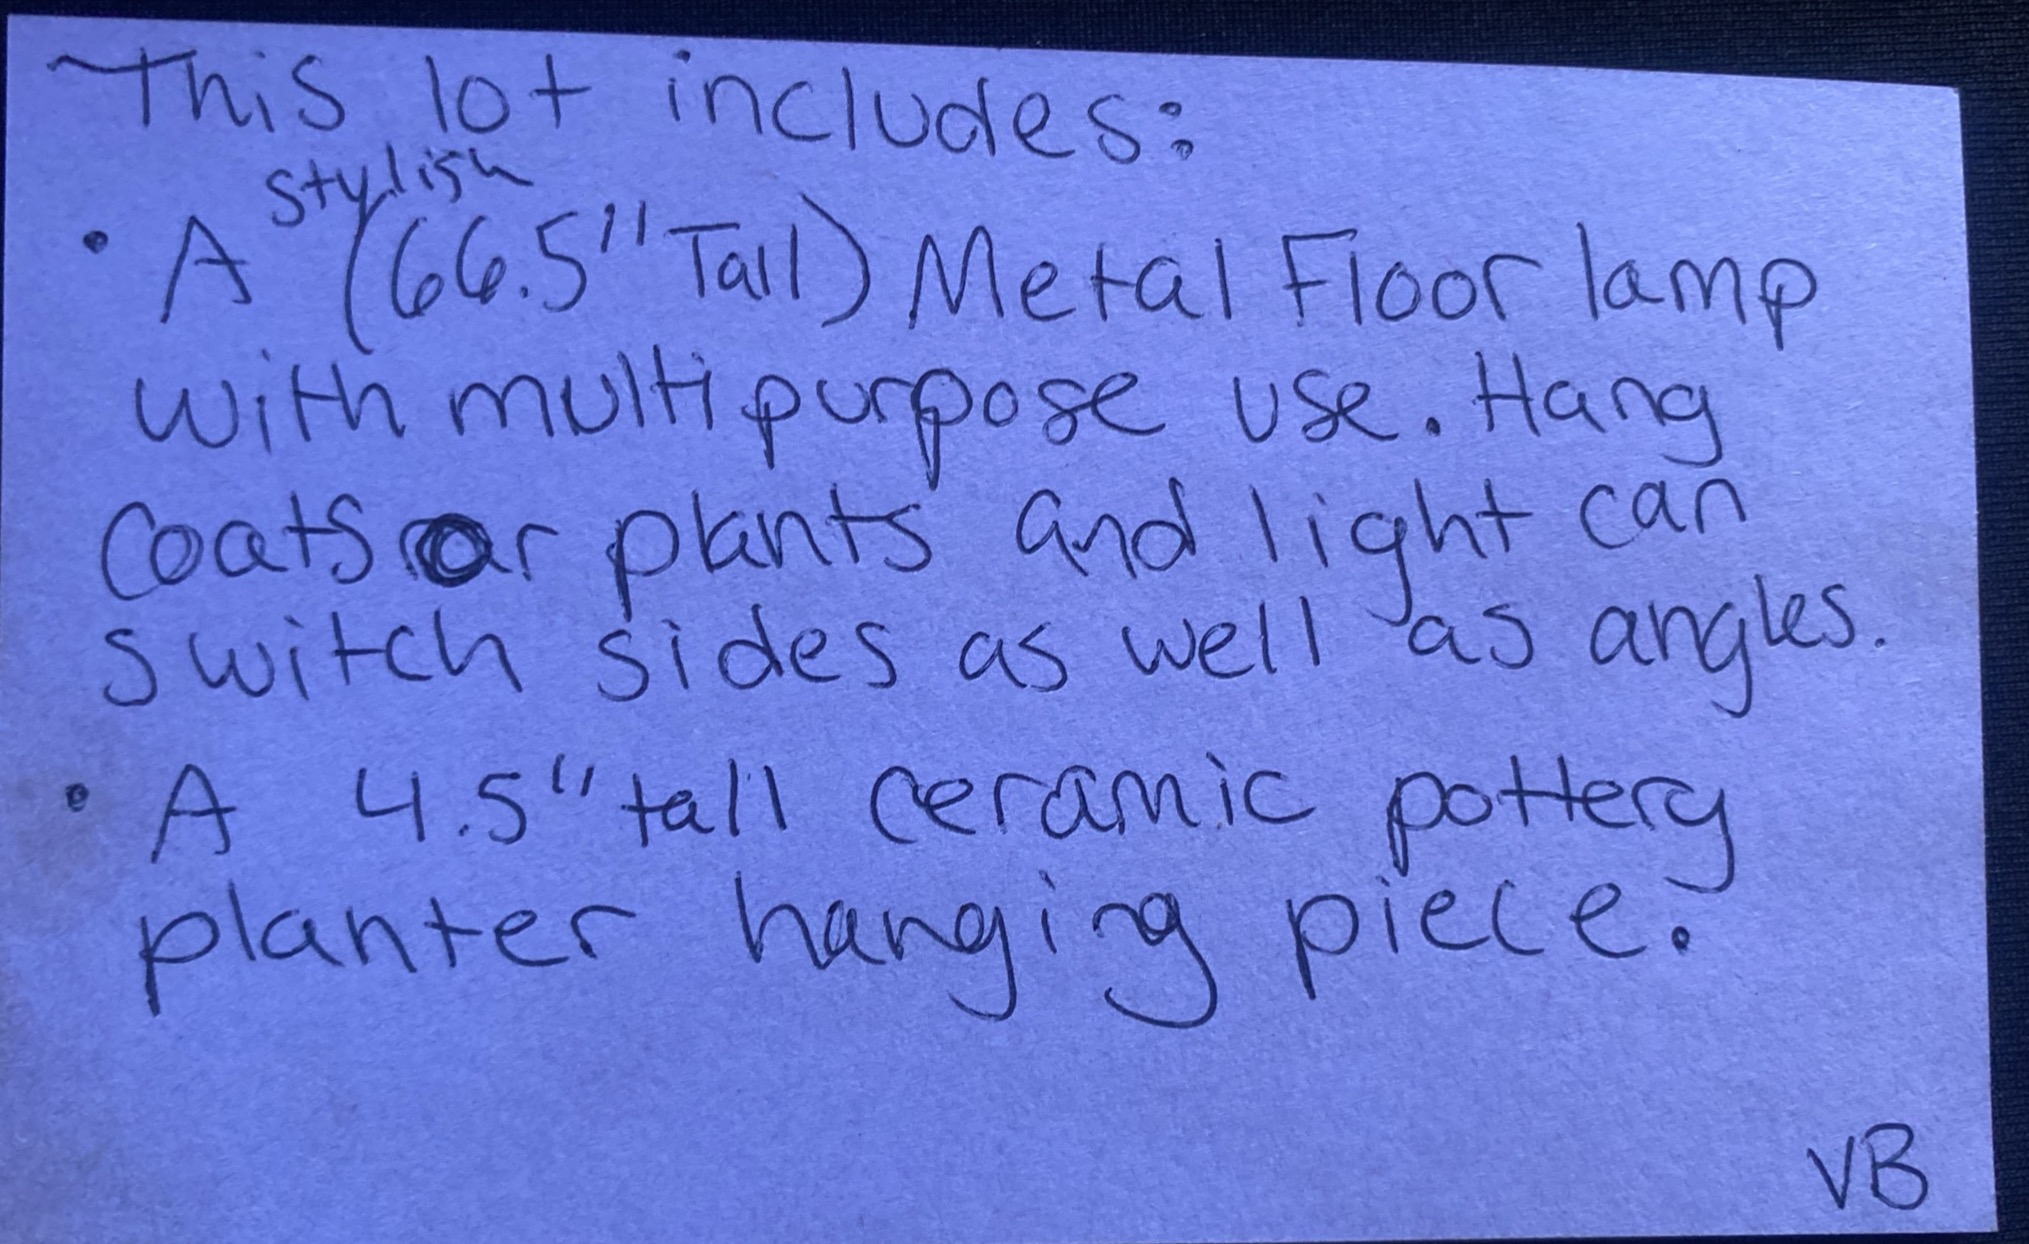 This lot includes:
• A stylish (66.5" Tall) Metal Floor lamp
with multipurpose use. Hang
coats or plants and light can
switch sides as well as angles.
• A 4.5" tall ceramic pottery
planter hanging piece.
VB